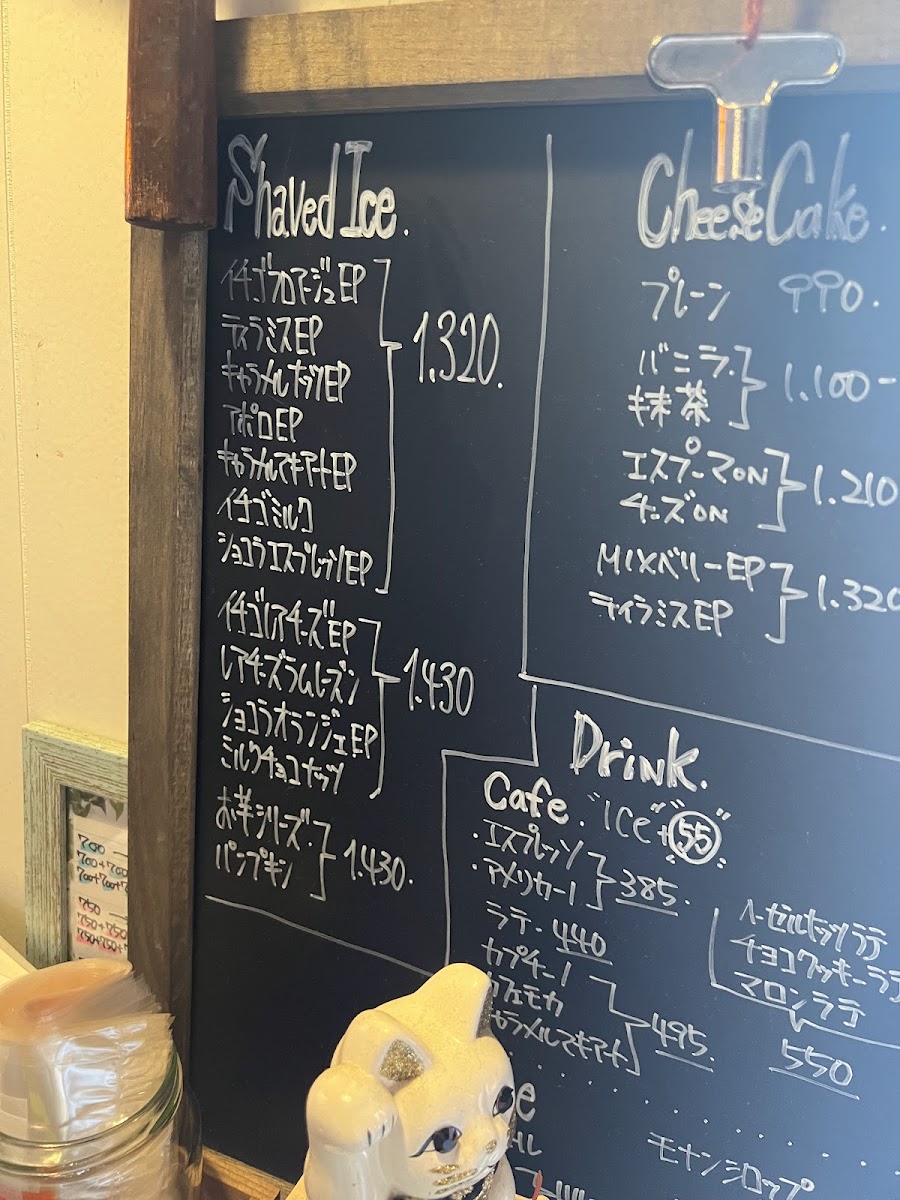 Shaved Ice.
イチゴフロマージュEP
ティラミスEP
キャラメルナッツEP
アポロEP
キャラメルマキアートEP
イチゴミルク
ショコラエスプレッソEP
1.320.
イチゴレアチーズEP
レアチーズラムレーズン
ショコラオランジェEP
ミルクチョコナッツ
1.430
お芋シリーズ.
パンプキン
1.430.
CheeseCake.
プレーン 990.
バニラ.
抹茶
1.100-
エスプーマON
チーズON
1.210
MIXベリーEP
ティラミスEP
1.320
Drink.
Cafe. "ICE"+55
・エスプレッソ
・アメリカーノ
385.
ラテ- 440
カプチーノ
カフェモカ
キャラメルマキアート
495.
ヘーゼルナッツラテ
チョコクッキーラテ
マロンラテ
550
モナンシロップ
700
700+700
700+700+7
750
750+750
750+750+7